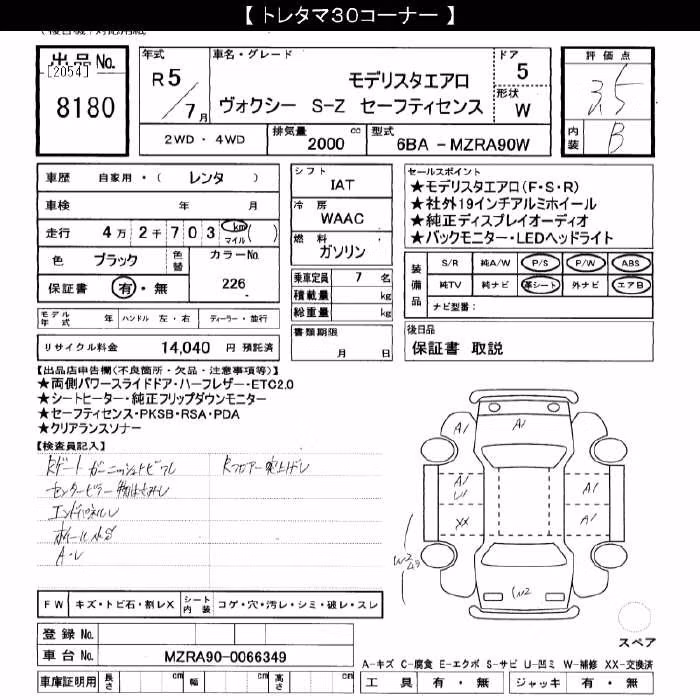 【 トレタマ30コーナー 】
出品No.
[2054]
8180
年式
R5
/7月
車名・グレード
モデリスタエアロ
ヴォクシー S-Z セーフティセンス
ドア
5
形状
W
評価点
3.5
内装
B
2WD ・ 4WD
排気量
2000 cc
型式
6BA - MZRA90W
車歴 自家用・( レンタ )
車検 年 月
走行 4万2千703 km マイル ( )
色 ブラック 色替
カラーNo.
226
保証書 有・無
シフト
IAT
冷房
WAAC
燃料
ガソリン
乗車定員 7 名
積載量 kg
総重量 kg
セールスポイント
★モデリスタエアロ(F・S・R)
★社外19インチアルミホイール
★純正ディスプレイオーディオ
★バックモニター・LEDヘッドライト
装備品
S/R 純A/W P/S P/W ABS
純TV 純ナビ 革シート 外ナビ エアB
ナビ型番:
モデル年式 年 ハンドル 左・右 ディーラー・並行
書類期限
月 日
後日品
保証書 取説
リサイクル料金 14,040 円 預託済
【出品店申告欄(不良箇所・欠品・注意事項等)】
★両側パワースライドドア・ハーフレザー・ETC2.0
★シートヒーター・純正フリップダウンモニター
★セーフティセンス・PKSB・RSA・PDA
★クリアランスソナー
【検査員記入】
A・U
A1
A1
A1
U1
XX
A1
A1
W2
W2
FW キズ・トビ石・割レX
シート内装 コゲ・穴・汚レ・シミ・破レ・スレ
登録 No.
車台 No. MZRA90-0066349
スペア
A-キズ C-腐食 E-エクボ S-サビ U-凹ミ W-補修 XX-交換済
車庫証明用 長さ cm 幅 cm 高さ cm
工具 有・無 ジャッキ 有・無